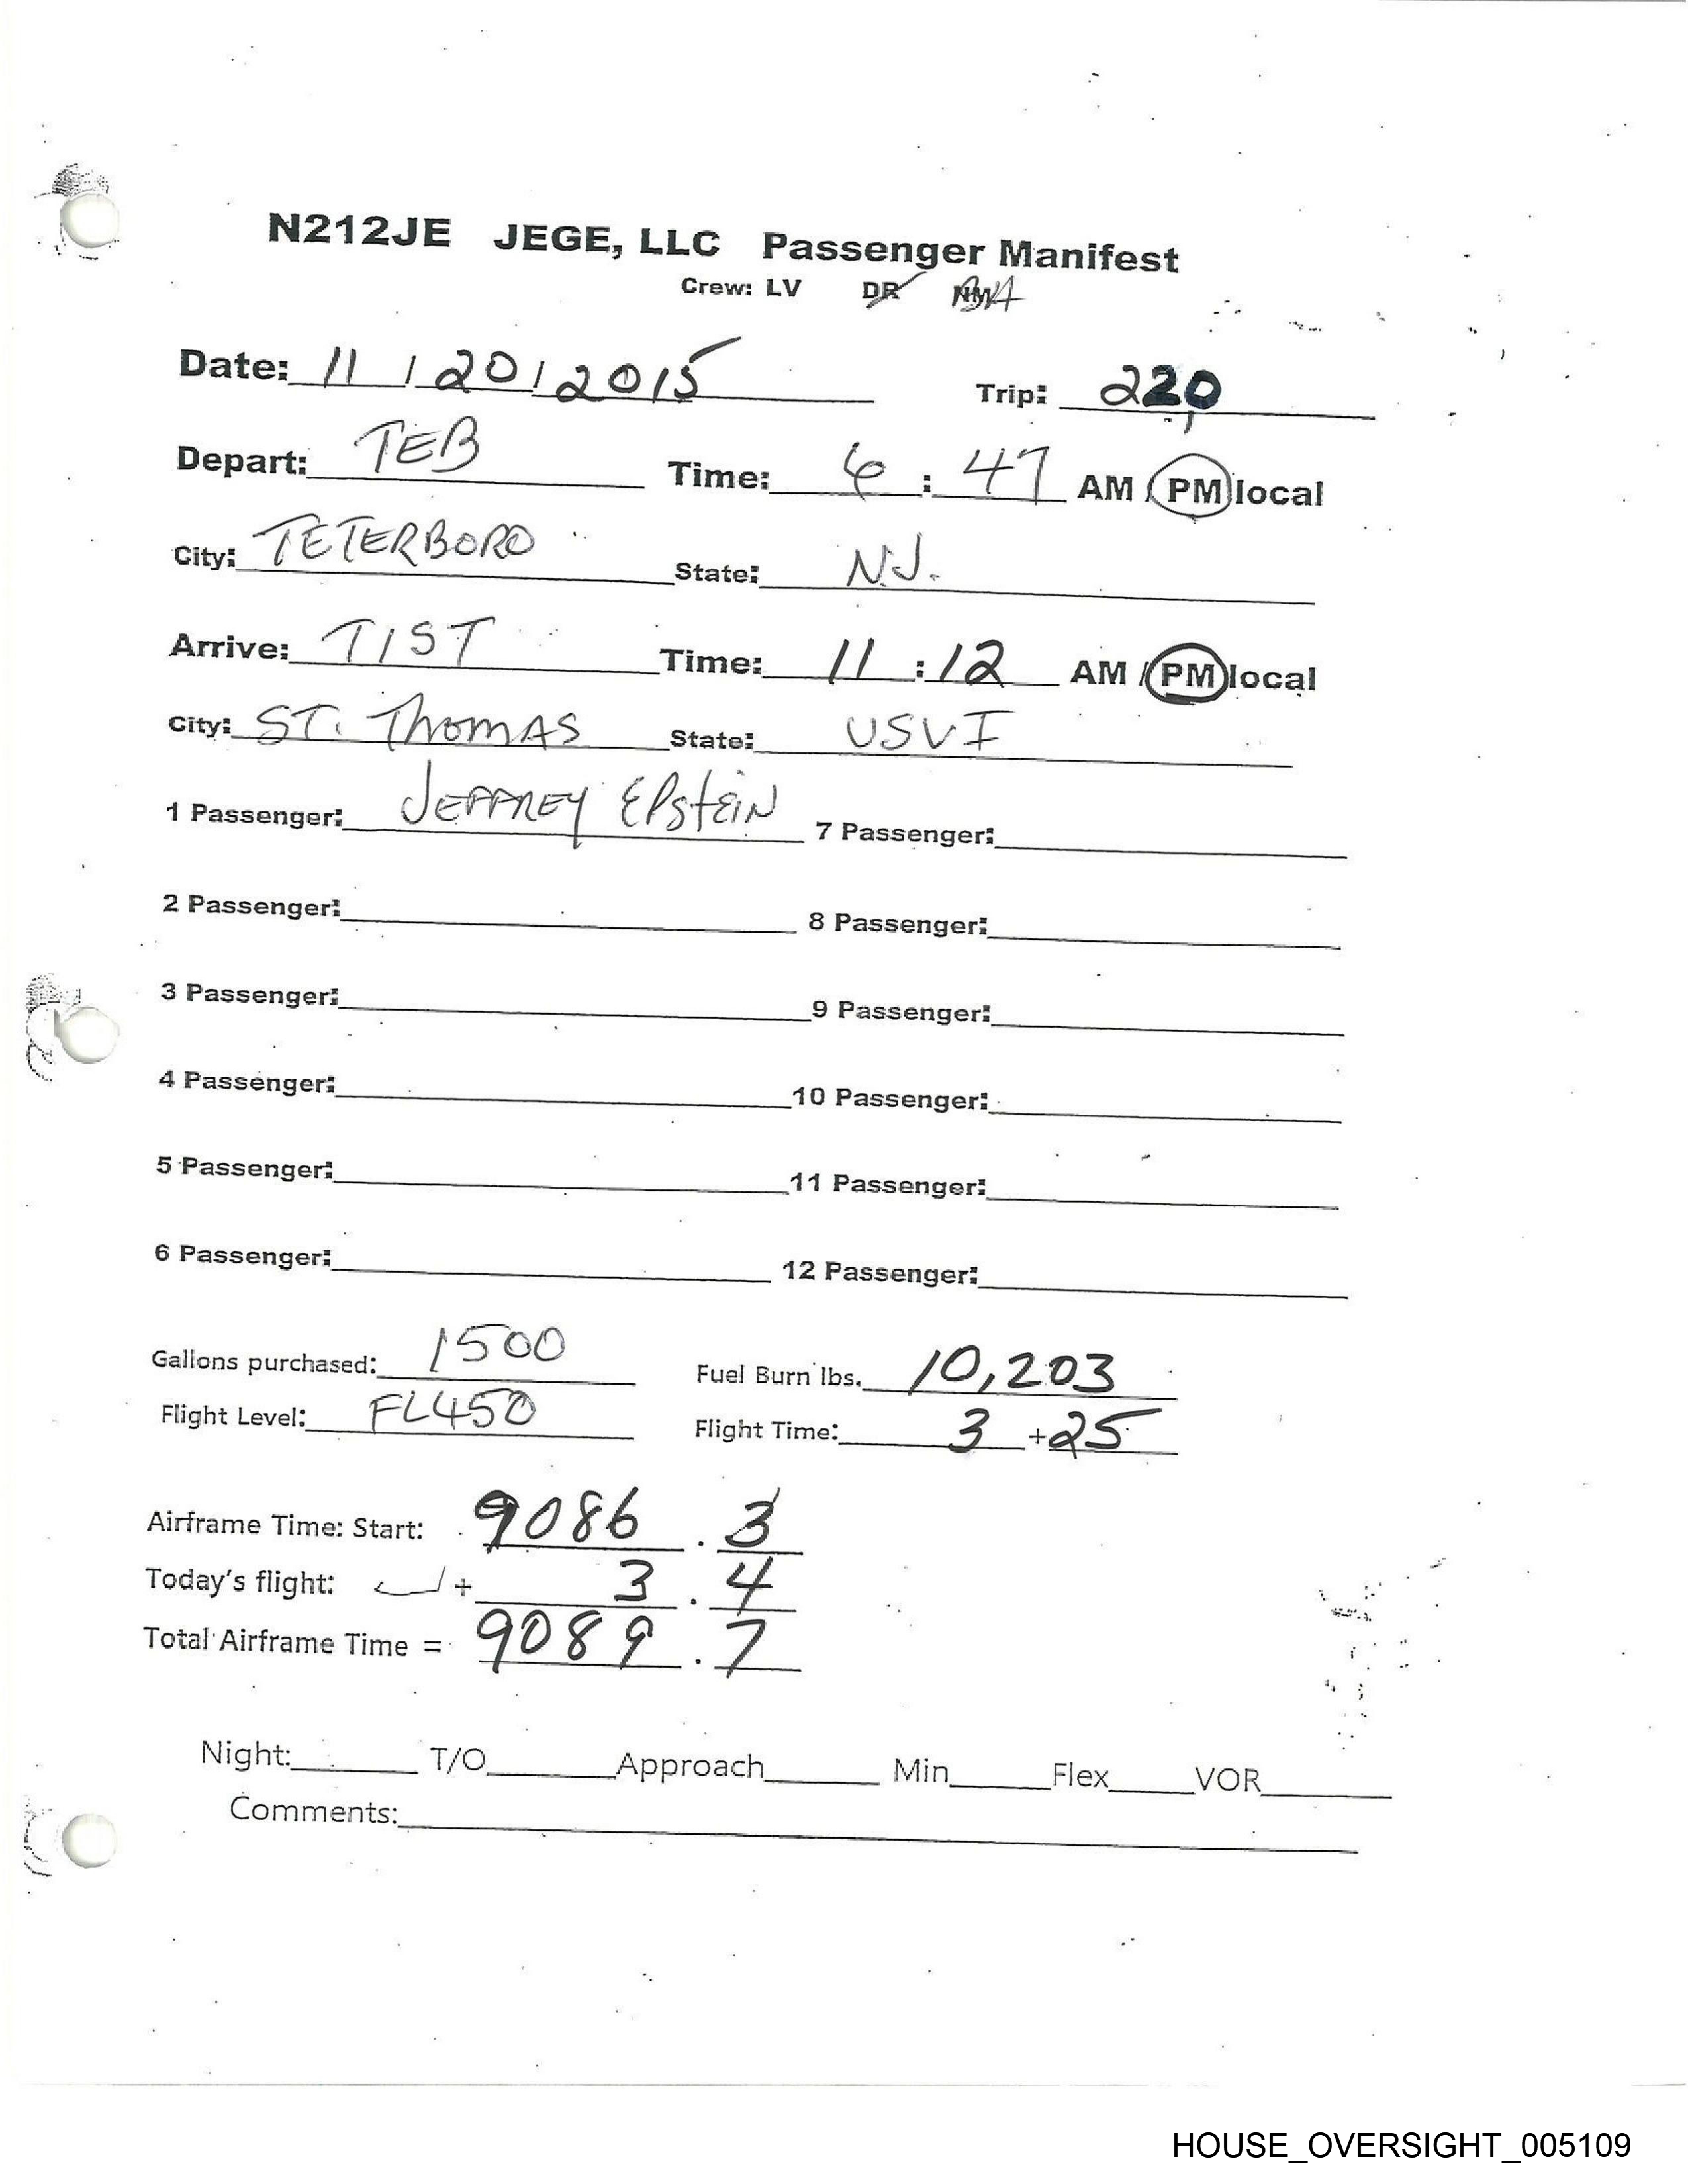 N212JE JEGE, LLC Passenger Manifest
Crew: LV DR
Date: 11 / 20 / 2015 Trip: 220
Depart: TEB Time: 6 : 47 AM / PM local
City: TETERBORO State: N.J.
Arrive: TIST Time: 11 : 12 AM / PM local
City: ST. THOMAS State: USVI
1 Passenger: JEFFREY EPSTEIN 7 Passenger:
2 Passenger: 8 Passenger:
3 Passenger: 9 Passenger:
4 Passenger: 10 Passenger:
5 Passenger: 11 Passenger:
6 Passenger: 12 Passenger:
Gallons purchased: 1500 Fuel Burn lbs. 10,203
Flight Level: FL450 Flight Time: 3 + 25
Airframe Time: Start: 9086 . 3
Today's flight: + 3 . 4
Total Airframe Time = 9089 . 7
Night: T/O Approach Min Flex VOR
Comments:
HOUSE_OVERSIGHT_005109